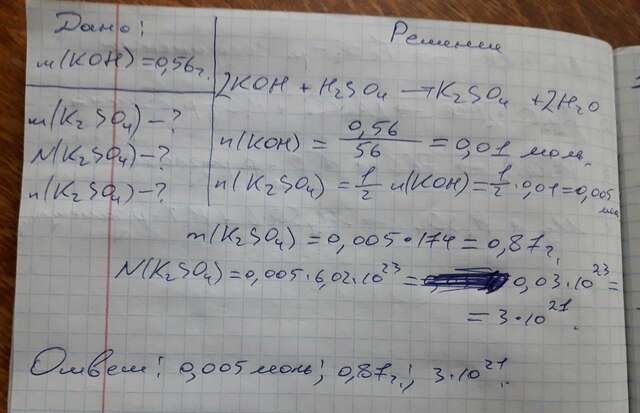 Дано:
m(KOH) = 0,56г.
m(K₂SO₄) – ?
N(K₂SO₄) – ?
n(K₂SO₄) – ?
Решение
2KOH + H₂SO₄ → K₂SO₄ + 2H₂O
n(KOH) = 0,56/56 = 0,01 моль.
n(K₂SO₄) = 1/2 n(KOH) = 1/2 · 0,01 = 0,005
моль
m(K₂SO₄) = 0,005 · 174 = 0,87г.
N(K₂SO₄) = 0,005 · 6,02 · 10²³ = 0,03 · 10²³ =
= 3 · 10²¹.
Ответ: 0,005 моль; 0,87г.; 3 · 10²¹.